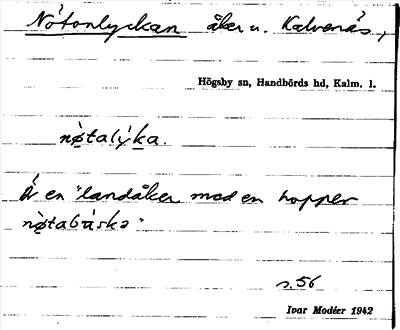 Nötonlyckan åker u. Kalvenäs,
Högsby sn, Handbörds hd, Kalm. l.
nø̀talýka.
Är en "landåker med en hopper
nø̀tabùskə"
s. 56
Ivar Modéer 1942